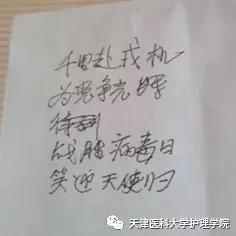 千里赴戎机
为党争光辉
待到
战胜病毒日
笑迎天使归
天津医科大学护理学院